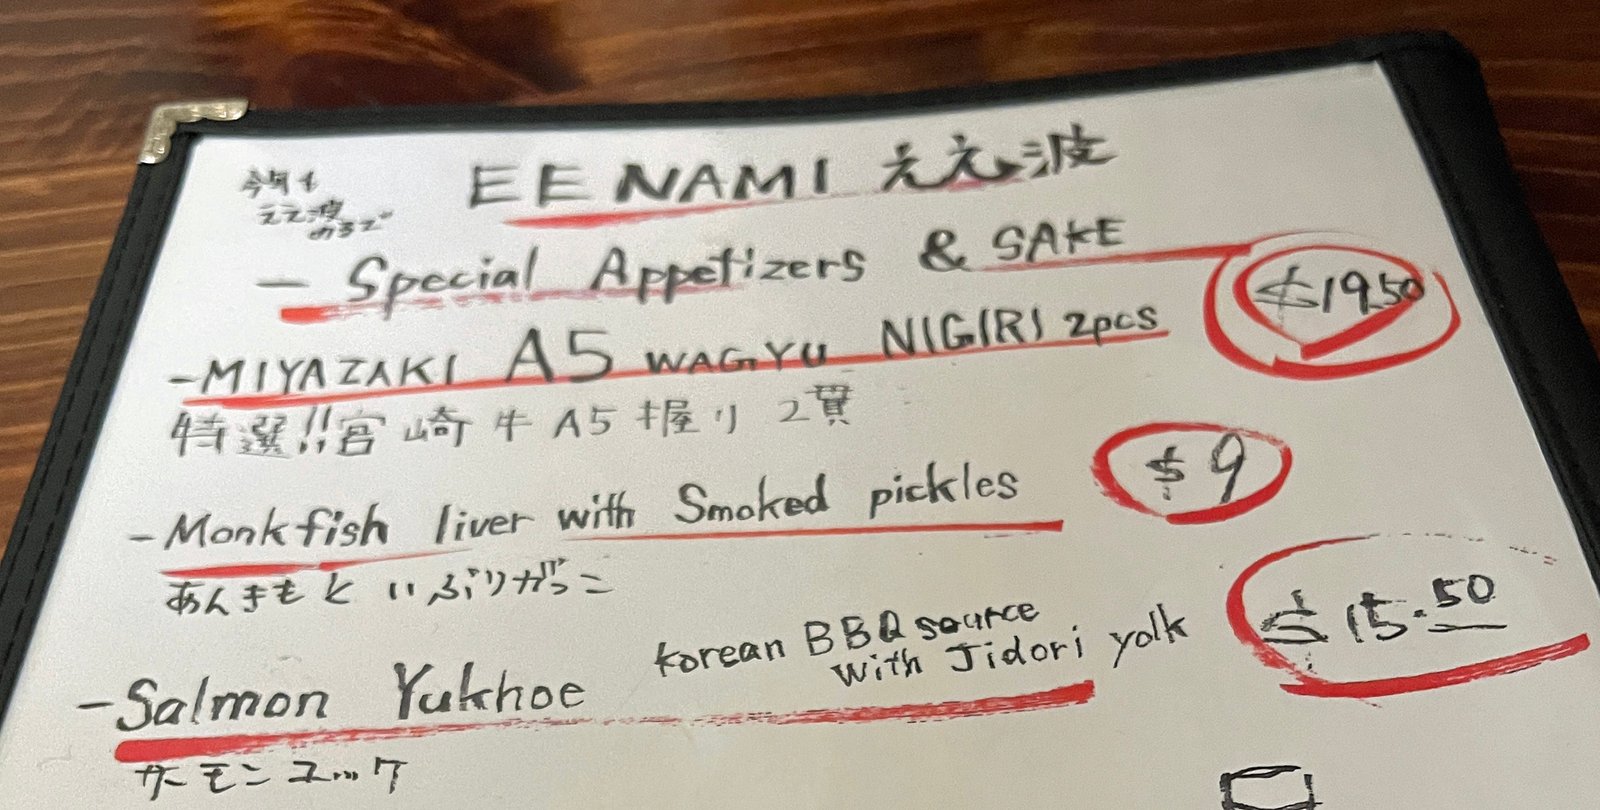 今年も
ええ波
のるで
EE NAMI ええ波
- Special Appetizers & SAKE
-MIYAZAKI A5 WAGYU NIGIRI 2pcs $19.50
特選!!宮崎牛A5握り 2貫
-Monkfish liver with Smoked pickles $9
あんきもと いぶりがっこ
-Salmon Yukhoe Korean BBQ source
with Jidori yolk $15.50
サーモンユッケ